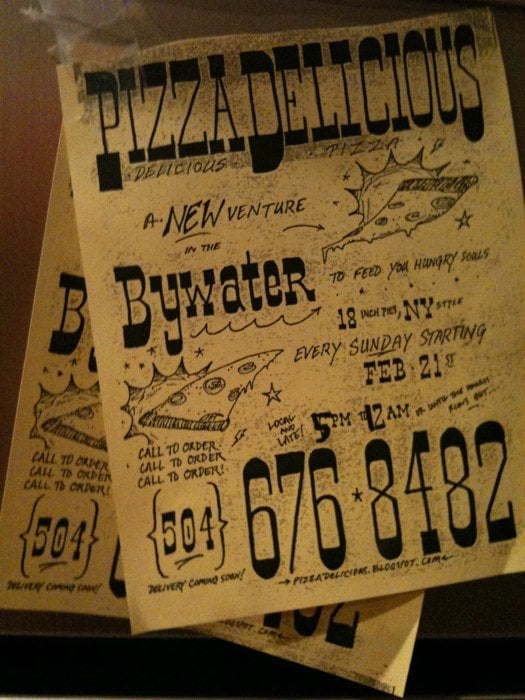 PIZZA DELICIOUS
DELICIOUS PIZZA
A NEW VENTURE
IN THE
Bywater
TO FEED YOU HUNGRY SOULS
18 INCH PIES, NY STYLE
EVERY SUNDAY STARTING
FEB 21ST
LOCAL
AND
LATE!
5PM TIL 12AM OR UNTIL THE DOUGH
RUNS OUT...
CALL TO ORDER
CALL TO ORDER
CALL TO ORDER!
{504} 676*8482
DELIVERY COMING SOON!
→ PIZZADELICIOUS.BLOGSPOT.COM
B
CALL TO ORDER
CALL TO ORDER
CALL TO ORDER!
{504}
DELIVERY COMING SOON!